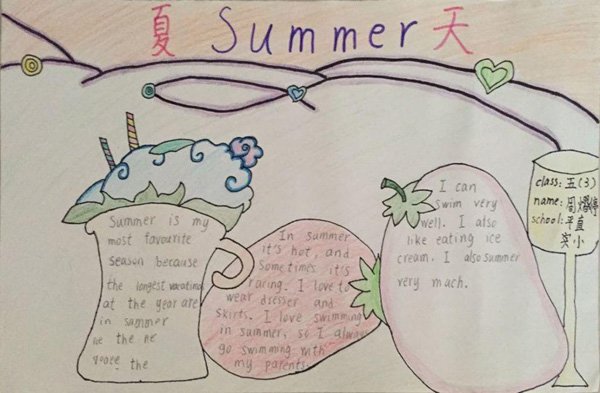 夏 Summer 天
class: 五(3)
name: 周
school: 平直
实小
Summer is my
most favourite
season because
the longest vacating
at the year are
in summer
the ne
the
In summer
it's hot, and
Sometimes it's
racing. I love to
wear dresser and
skirts. I love swimming
in summer, so I always
go swimming with
my parents.
I can
swim very
well. I also
like eating ice
cream. I also summer
very mach.